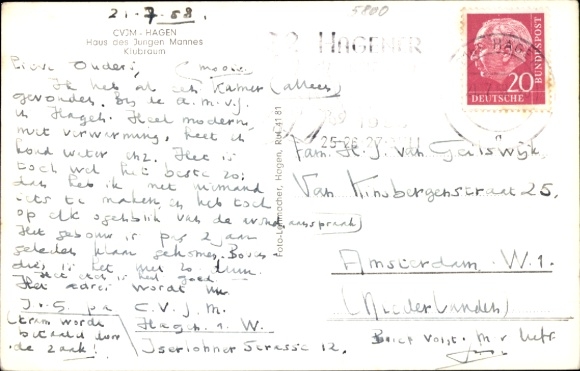 21-7-58.
5800
CVJM - HAGEN
Haus des Jungen Mannes
Klubraum
HAGENER
DEUTSCHE BUNDESPOST
20
Lieve Ouders,
Ik heb al een kamer (alleen)
(mooie
gevonden. bij de a.m.v.j.
in Hagen. Heel modern,
met verwarming, heet en
koud water enz. Het is
toch wel het beste zo;
dan heb ik met niemand
iets te maken en heb toch
op elk ogenblik van de avond aanspraak)
Het gebouw is pas 2 jaar
geleden klaar gekomen. Boven-
dien is het niet zo duur.
Het eten is heel goed.
Het adres wordt nu
J. v. G. pa C.V.J.M.
Hagen i. W.
Iserlohner Strasse 12.
(tram wordt
betaald door
de zaak!
Foto-Lehmacher, Hagen, Ruf 41 81
25-26-27
Fam. H. J. van Geilswijk,
Van Kinsbergenstraat 25.
Amsterdam. W.1.
(Niederlanden)
Brief volgt.